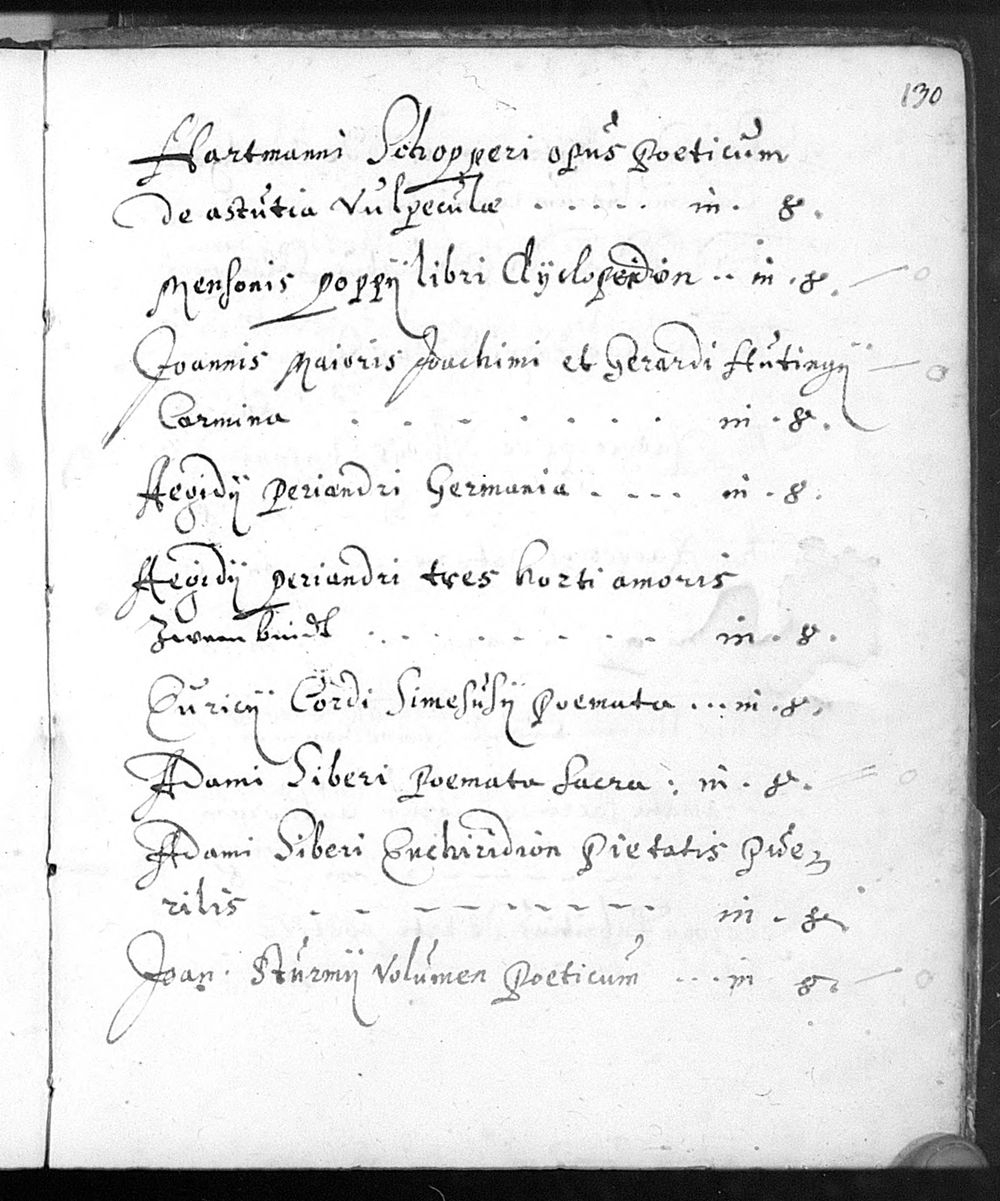 130
Hartmanni Schopperi opus Poeticum
de astutia Vulpeculæ . . . . . in . 8.
Mensonis Poppij libri Clyclopeidon .. in . 8.
Joannis Maioris Joachimi et Gerardi Hutingij
Carmina . . . . . . . in . 8.
Aegidij Periandri Germania . . . . in . 8.
Aegidij Periandri tres horti amoris
. . . . . . . . in . 8.
Euricij Cordi Simesusij Poemata ... in . 8.
Adami Siberi Poemata sacra . in . 8.
Adami Siberi Enchiridion Pietatis Pue-
rilis . . . . . . . . . in . 8.
Joan. Sturmij Volumen Poeticum ... in 8.